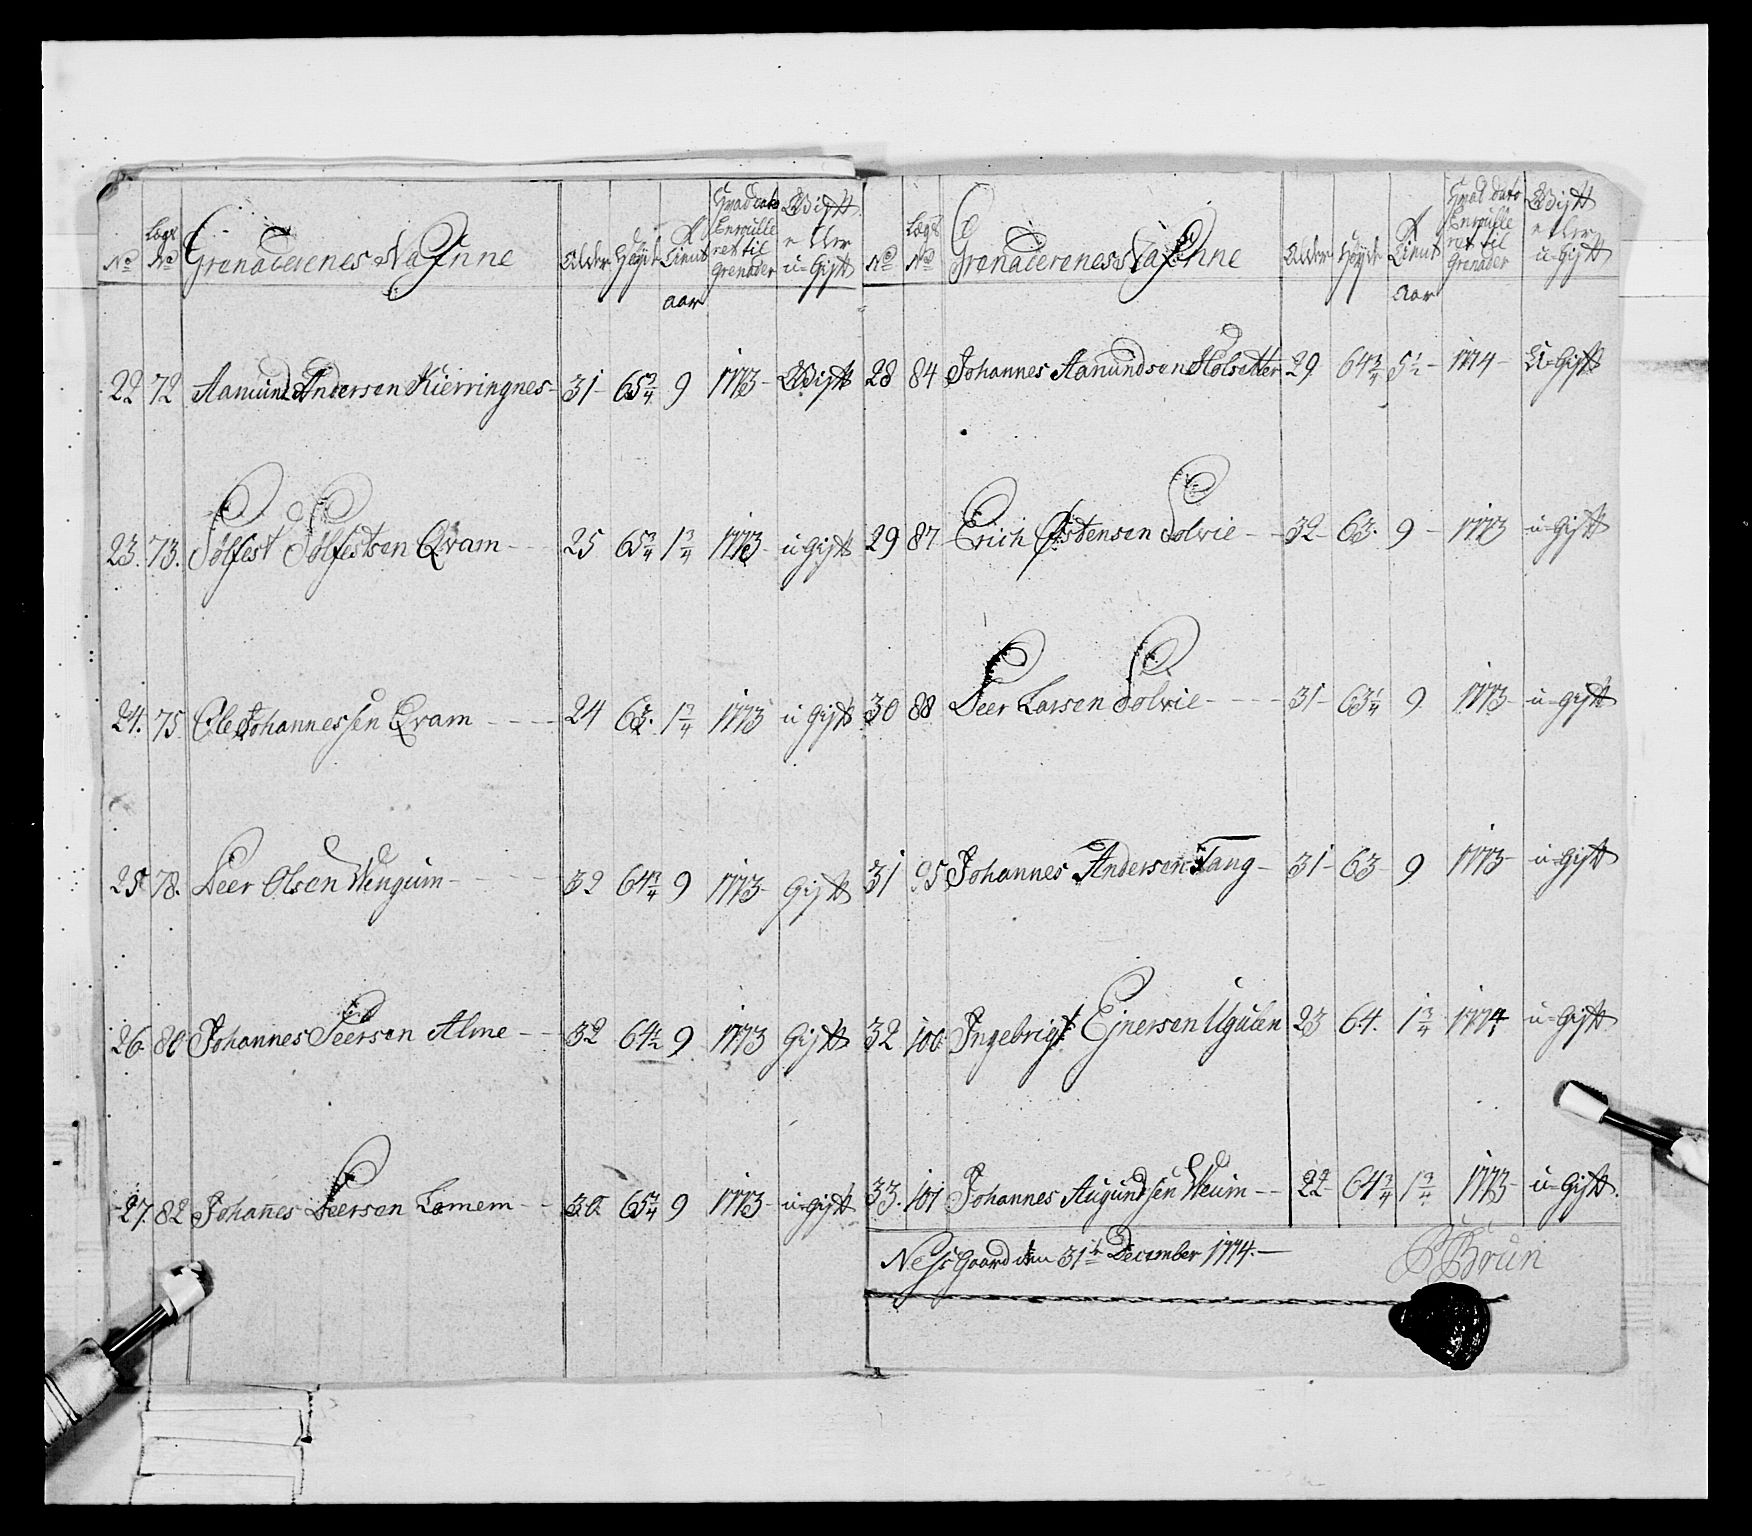 No Lægs No Grenaderenes Nafne Alder Høyde Tient aar Hvad dato Enroulle ret til Grenader Gift eller u-Gift
22 72 Aamund Andersen Kierringnes 31 65 3/4 9 1773 Gift
23. 73. Sølfest Sølfestsen Qvam 25 65 3/4 1 3/4 1773 u-Gift
24. 75 Ole Johannessen Qvam 24 63. 1 3/4 1773 u Gift
25 78. Peer Olsen Wengum 32 64 3/4 9 1773 Gift
26 80 Johannes Peersen Alme 32 64 1/2 9 1773 Gift
27. 82 Johanes Peersen Lomem 30 65 3/4 9 1773 u-Gift
No Lægs No Grenaderenes Nafne Alder Høyde Tient Aar Hvad dato Enroulle ret til Grenader Gift eller u-Gift
28 84 Johannes Aamundsen Holsetter 29 64 3/4 5 1/2 1774 U-Gift
29 87 Erich Østensen Solvie 32 63. 9 1773 u-Gift
30 88 Peer Larsen Solvie 31 63 1/4 9 1773 u-Gift
31 95 Johannes Andersen Tang 31 63 9 1773 u-Gift
32 100 Ingebrigt Ejnersen Ugulen 23 64. 1 3/4 1774 u-Gift
33. 101 Johannes Augundsen Weum 22 64 3/4 1 3/4 1773 u-Gift.
Nessgaard den 31te December 1774. Brun